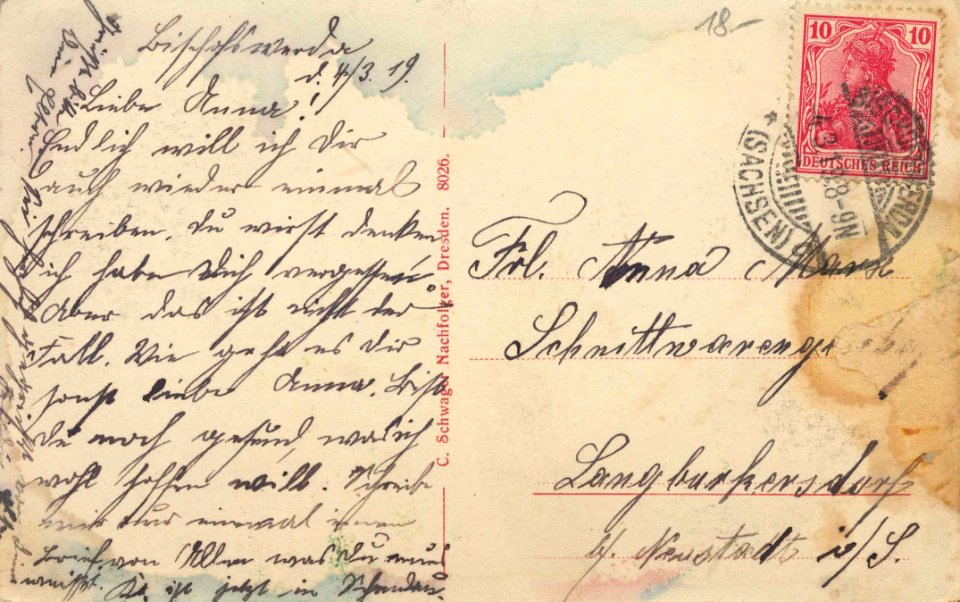 Bischofswerda
d. 4/3. 19.
Liebe Anna!
Endlich will ich Dir
auch wieder einmal
schreiben, du wirst denken
ich habe Dich vergessen.
Aber das ist nicht der
Fall. Wie geht es Dir
sonst liebe Anna. Bist
Du noch gesund, was ich
wohl hoffen will. Schreibe
mir nur einmal einen
Brief von Allem was Du neues
weißt. Es ist jetzt in Schandau.
C. Schwager Nachfolger, Dresden. 8026.
18-
10 10
DEUTSCHES REICH
(SACHSEN)
8-9N
Frl. Anna Marx
Schnittwareng
Langburkersdorf
b/ Neustadt i/S.